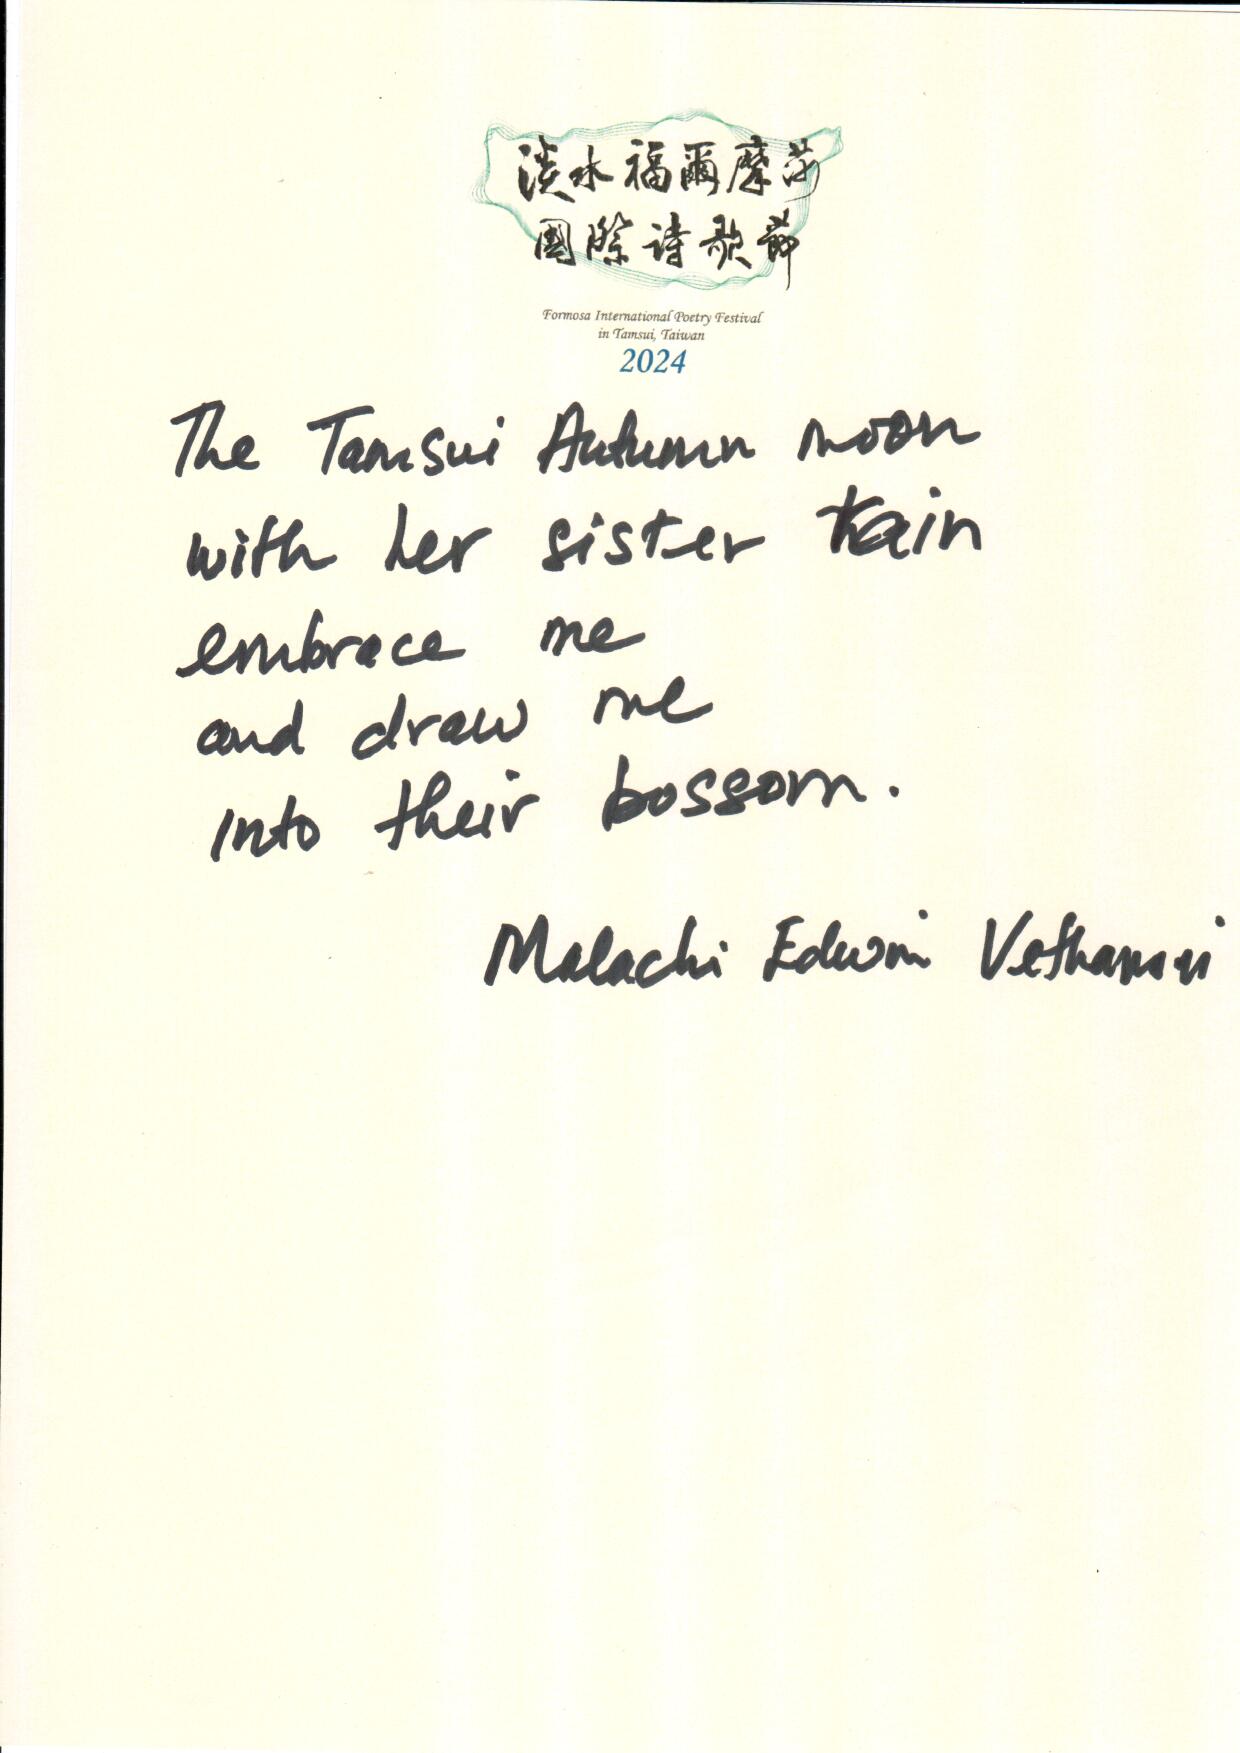 淡水福爾摩莎
國際詩歌節
Formosa International Poetry Festival
in Tamsui, Taiwan
2024
The Tamsui Autumn moon
with her sister
embrace me
and draw me
into their bossom.
Malachi Edwin Vethamani